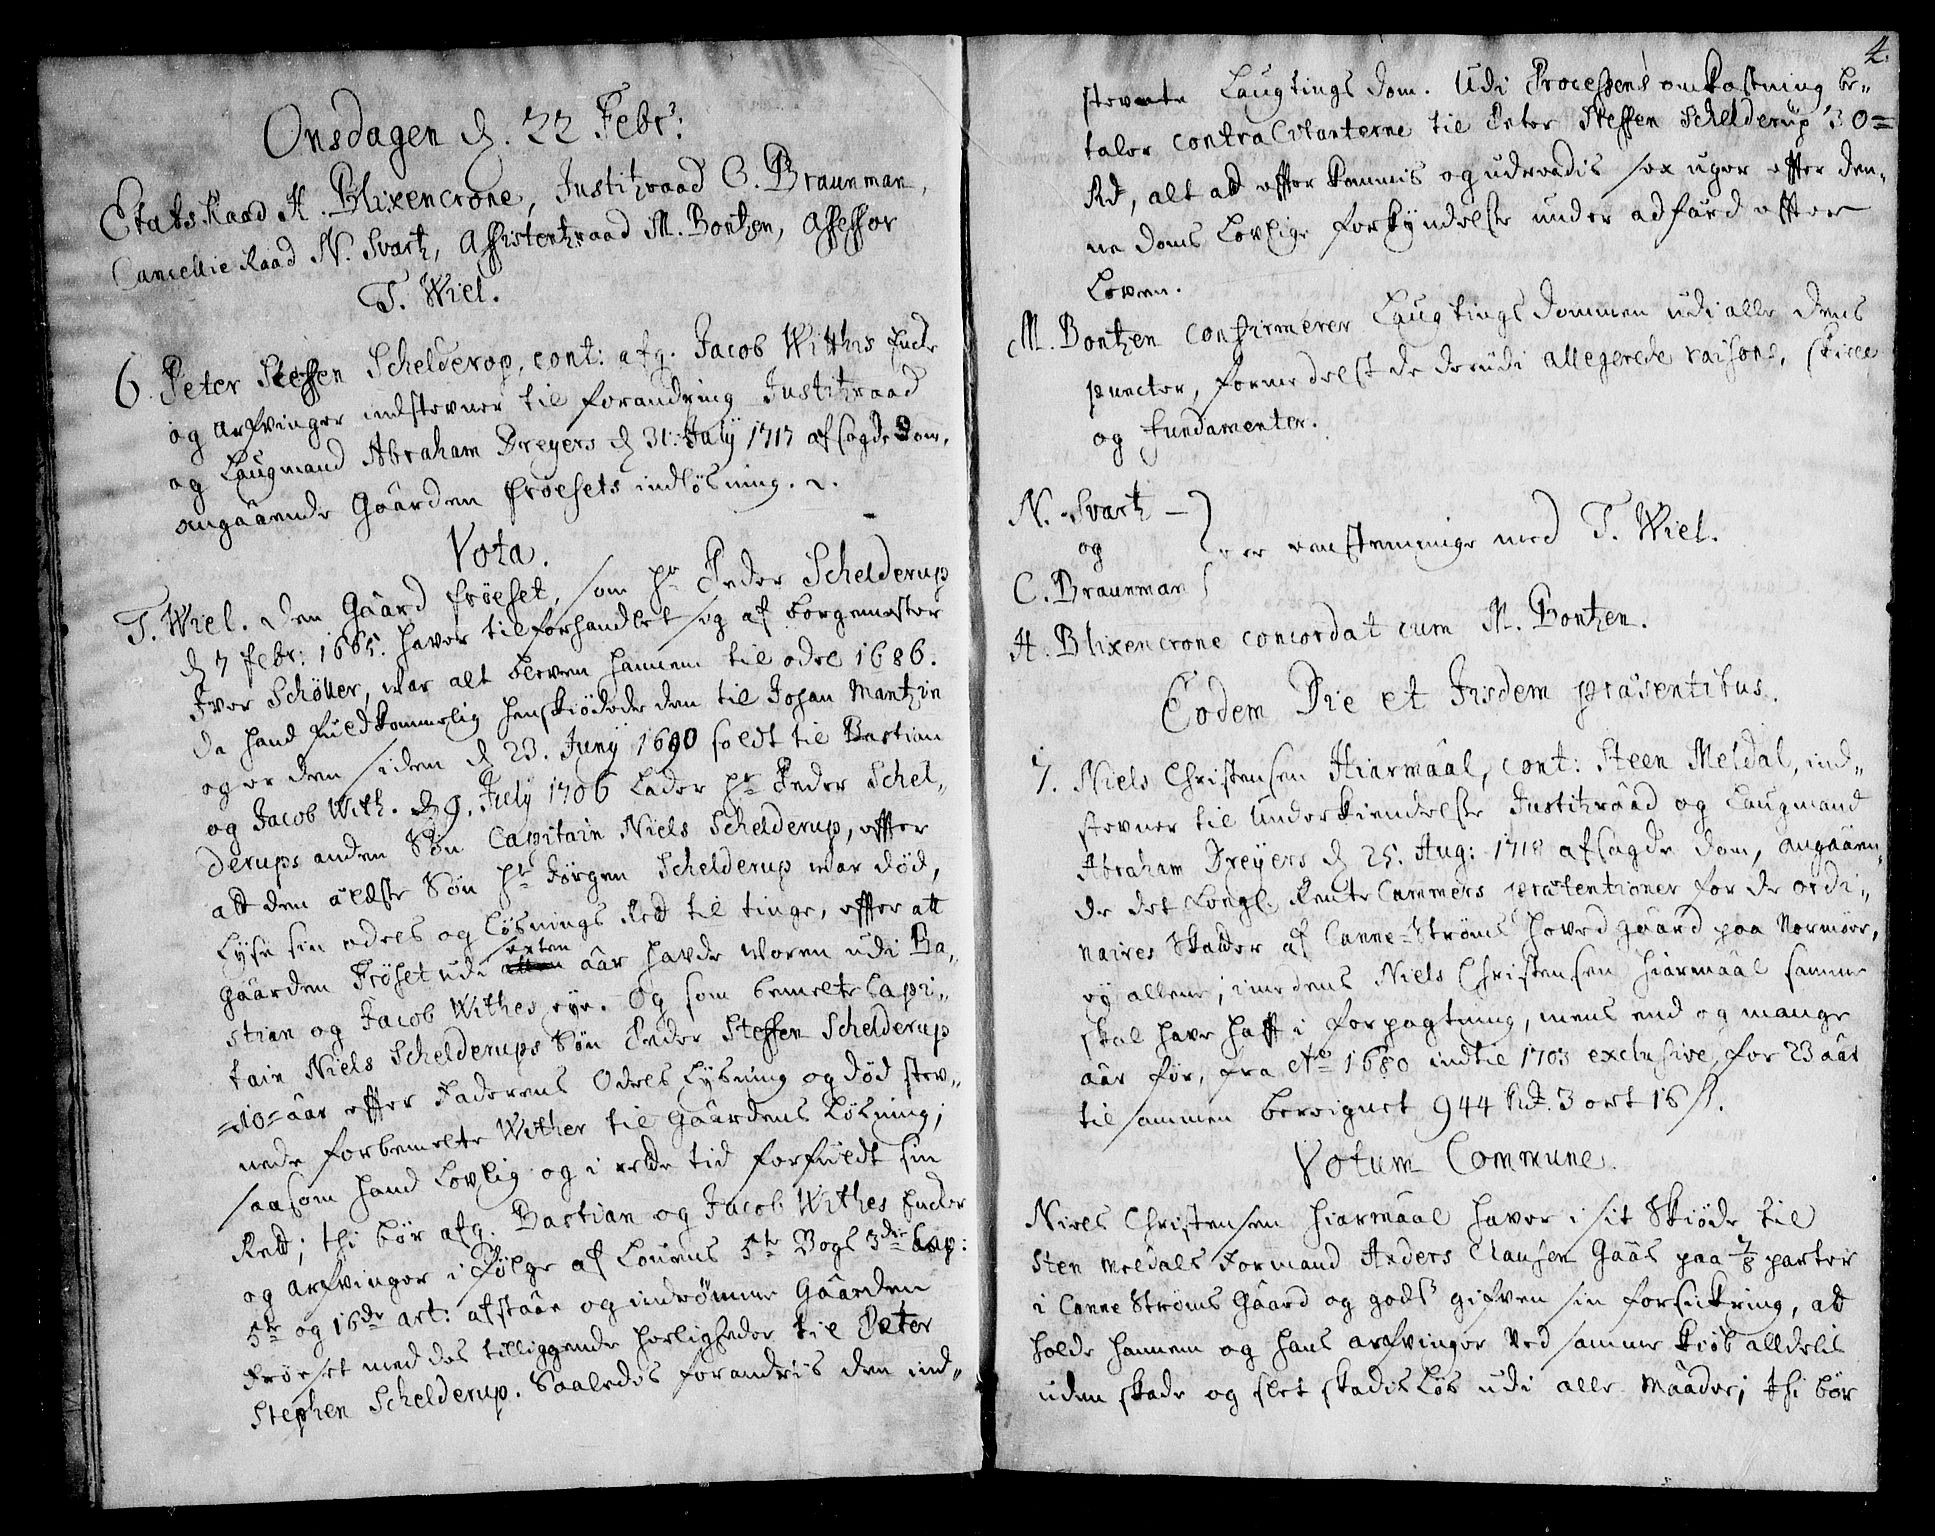 Onsdagen d. 22 Febr:
Etats Raad H. Blixencrone, Justitzraad C. Braunman,
Cancellie Raad N. Svartz, Assistentzraad M. Bontzen, Assessor
T. Wiel.
6. Peter Steffen Schelderop, cont: afg. Jacob Withis Encke
og arfvinger indstevner til forandring Justitzraad
og Laugmand Abraham Dreyers d 31. July 1717 afsagde Dom,
angaaende Gaarden Frøesets indløsning.
Vota.
T. Wiel. Den Gaard Frøeset, som Hr Peder Schelderup
d 7 Febr: 1665. haver tilforhandlet sig af Borgemester
Iver Schøller, war alt bleven hannem til odel 1686.
da hand fuldkommelig henskiødede den til Johan Mantzin
og er den siden d 23. Juny 1690 soldt til Bastian
og Jacob With. d 9. July 1706 Lader Hr Peder Schel-
derups anden Søn Capitain Niels Schelderup, effter
att den ældste Søn Hr Jørgen Schelderup war død,
Lyse sin odels og Løsnings Rett til tinge, effter att
gaarden Frøset udi sexten aar havde woren udi Ba-
stian og Jacob Withes eye. Og som bemelte Capi-
tain Niels Schelderups Søn Peder Steffen Schelderup
=10= aar effter Faderens Odels Lysning og død stev-
nede forbemelte Wither til Gaardens Løsning;
saasom hand Lovlig og i rette tid forfuldt sin
Rett; thi bør afg. Bastian og Jacob Withes Encker
og arfvinger i Følge af Lovens 5te Bogs 3die Cap:
5te og 16de art: afstaae og indrømme Gaarden
Frøeset med des tilliggende herligheder til Peter
Stephen Schelderup. Saaledis forandris den ind-
4.
stevnte Laugtings Dom. Udi Processens omkostning be-
taler ContraCitanterne til Peter Steffen Schelderup 30=
Rd, alt att effterkommis og udreedis sex uger effter den-
ne Doms Lovlige forkyndelse under adfærd effter
Loven.
M. Bontzen Confirmerer Laugtings Dommen udi alle dens
puncter, formedelst de derudi allegerede raisons, skiell
og Fundamenter.
N. Svartz
og er eenstemmige med T. Wiel.
C. Braunman
H. Blixencrone concordat cum M. Bontzen.
Eodem Die et Iisdem præsentibus.
7. Niels Christensen Hiarmaal, cont: Steen Meldal, ind-
stevner til Underkiendelse Justitzraad og Laugmand
Abraham Dreyers d 25. Aug: 1718 afsagde Dom, angaaen-
de det Kongl. Rente Cammers prætentioner for de ordi-
naires Skatter af Canne-Strøms hoved gaard paa Normøer,
ey allene, imedens Niels Christensen Hiarmaal samme
skal have hafft i forpagtning, mens end og mange
aar før, fra Ao 1680 indtil 1703 exclusive, for 23 aar
tilsammen beroignet 944 Rd. 3 ort 16 s.
Votum Commune.
Niels Christensen Hiarmaal haver i sit Skiøde til
Sten Meldals Formand Anders Clausen Gaas paa 7/8 parter
i Canne Strøms Gaard og gods gifven sin forsickring, att
holde hannem og hans arfvinger ved samme kiøb alldelis
uden skade og slet skadisløs udi alle maader; thi bør